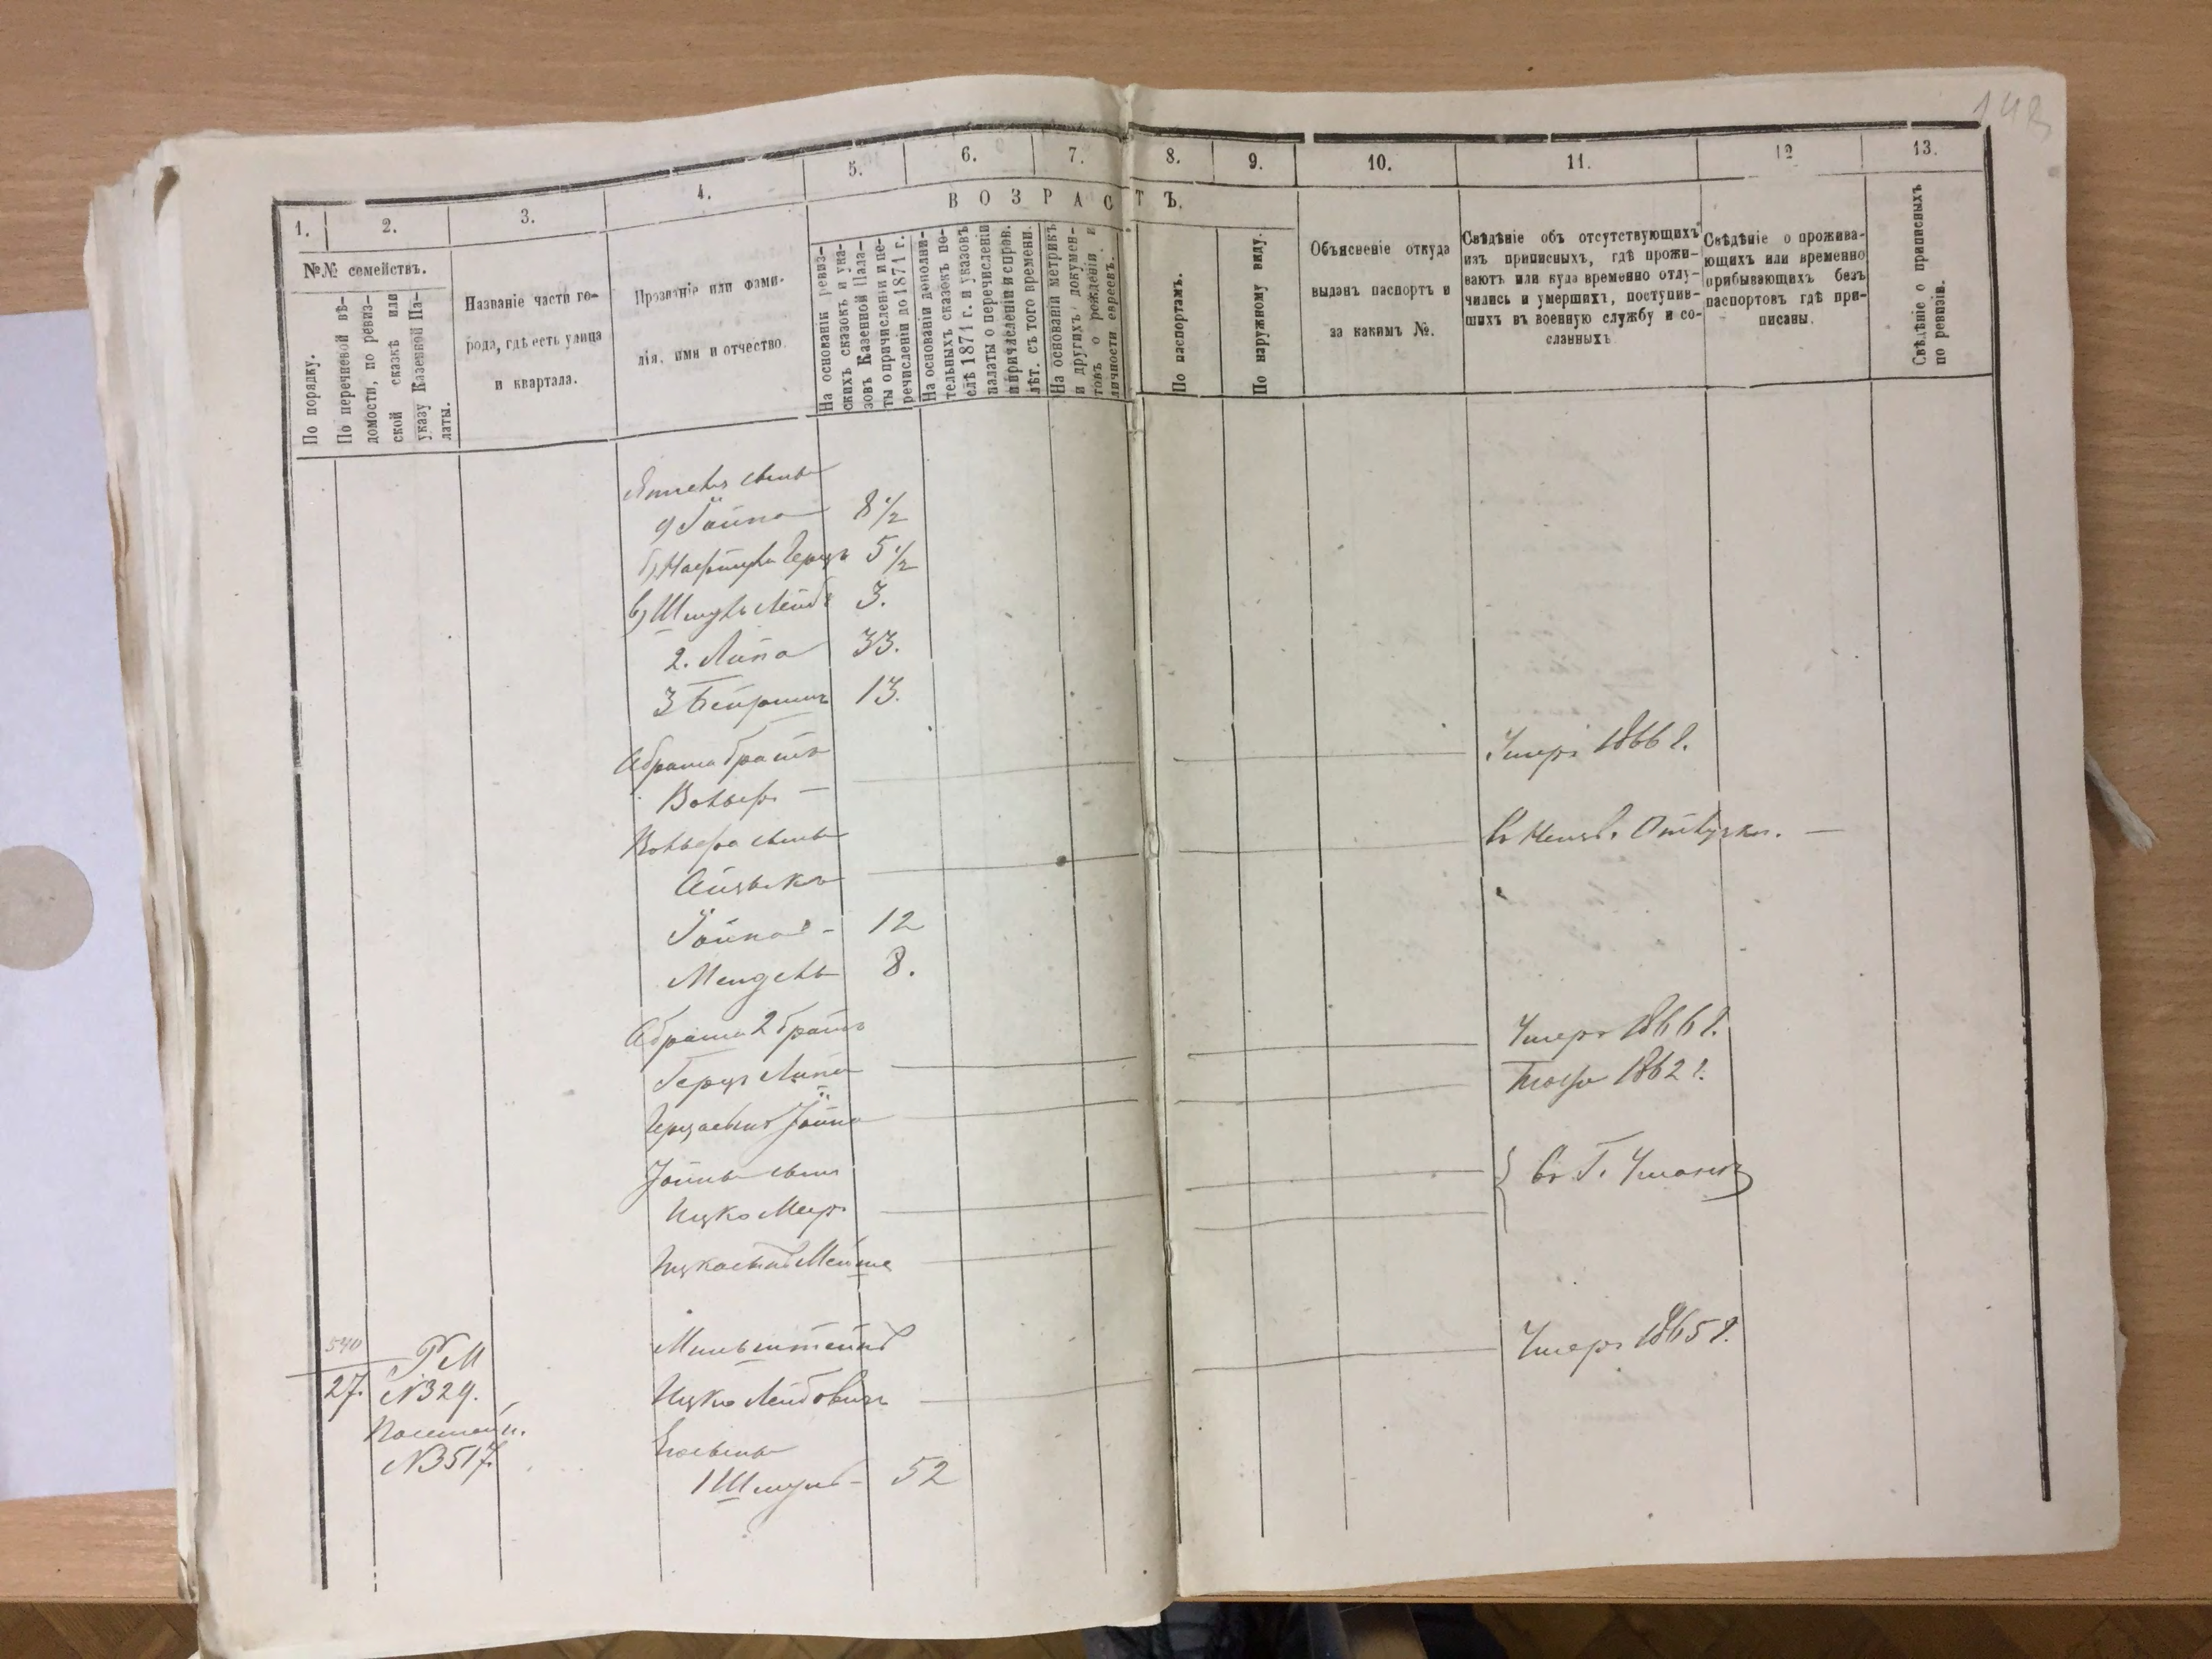 148
1.
2.
3.
4.
5.
6.
7.
8.
9.
10.
11.
12
13.
В О З Р А С Т Ъ.
№№ семействъ.
По порядку.
По перечневой вѣ-
домости, по ревиз-
ской сказкѣ или
указу Казенной Па-
латы.
Названіе части го-
рода, гдѣ есть улица
и квартала.
Прозваніе или фами-
лія, имя и отчество.
На основаніи ревиз-
скихъ сказокъ и ука-
зовъ Казенной Пала-
ты о причисленіи и пе-
речисленіи до 1871 г.
На основаніи дополни-
тельныхъ сказокъ по-
слѣ 1871 г. и указовъ
палаты о перечисленіи
и причисленіи и справ.
лѣт. съ того времени.
На основаніи метрикъ
и другихъ докумен-
товъ о рожденіи и
личности евреевъ.
По паспортамъ.
По наружному виду.
Объясненіе откуда
выданъ паспортъ и
за какимъ №.
Свѣдѣніе объ отсутствующихъ
изъ приписныхъ, гдѣ прожи-
ваютъ или куда временно отлу-
чились и умершихъ, поступив-
шихъ въ военную службу и со-
сланныхъ
Свѣдѣніе о прожива-
ющихъ или временно
прибывающихъ безъ
паспортовъ гдѣ при-
писаны.
Свѣдѣніе о приписныхъ
по ревизіи.
сыны
а) Іойна 8 1/2
б) Нафтула Герцъ 5 1/2
в) Шмуль Лейбъ 3.
2. Липа 33.
3 Бейришъ 13.
Абрама братъ
Вольфъ — Умеръ 1866 г.
Вольфа сыны
Айзыкъ
Іойна - 12
Мендель 8.
Абрама 2 братъ
Герцъ Липа Умеръ 1866 г.
Іойна 1862 г.
Іойны сынъ
Ицко Меръ въ Г. Умани
540
27. РМ
№329.
№3517.
Ицко Лейбовичъ Умеръ 1865 г.
Его сыны
1 Шмуль - 52